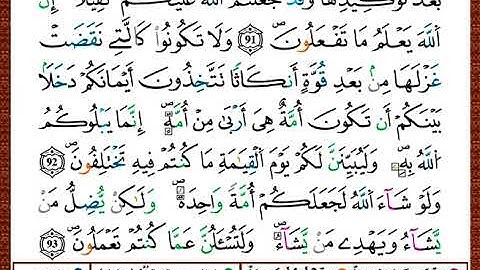 بَعْدَ تَوْكِيدِهَا وَقَدْ جَعَلْتُمُ اللَّهَ عَلَيْكُمْ كَفِيلًا ۚ إِنَّ
اللَّهَ يَعْلَمُ مَا تَفْعَلُونَ 91 وَلَا تَكُونُوا كَالَّتِي نَقَضَتْ
غَزْلَهَا مِنْ بَعْدِ قُوَّةٍ أَنكَاثًا تَتَّخِذُونَ أَيْمَانَكُمْ دَخَلًا
بَيْنَكُمْ أَن تَكُونَ أُمَّةٌ هِيَ أَرْبَىٰ مِنْ أُمَّةٍ ۚ إِنَّمَا يَبْلُوكُمُ
اللَّهُ بِهِ ۚ وَلَيُبَيِّنَنَّ لَكُمْ يَوْمَ الْقِيَامَةِ مَا كُنتُمْ فِيهِ تَخْتَلِفُونَ 92
وَلَوْ شَاءَ اللَّهُ لَجَعَلَكُمْ أُمَّةً وَاحِدَةً وَلَٰكِنْ يُضِلُّ مَنْ
يَشَاءُ وَيَهْدِي مَنْ يَشَاءُ ۚ وَلَتُسْأَلُنَّ عَمَّا كُنتُمْ تَعْمَلُونَ 93